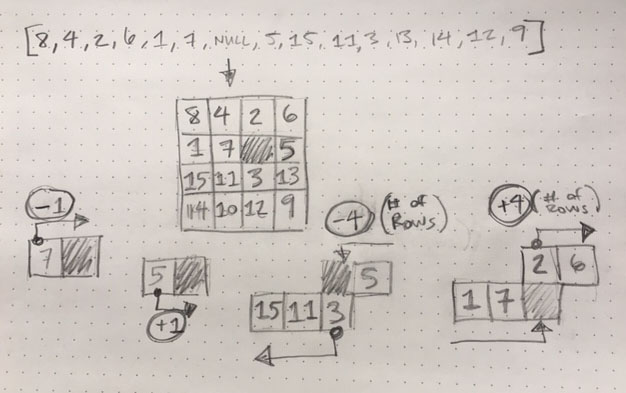 [8, 4, 2, 6, 1, 7, NULL, 5, 15, 11, 3, 13, 14, 12, 9]
8 4 2 6
1 7 5
15 11 3 13
14 10 12 9
-1
7
5
+1
-4 (# of Rows)
5
15 11 3
+4 (# of Rows)
2 6
1 7